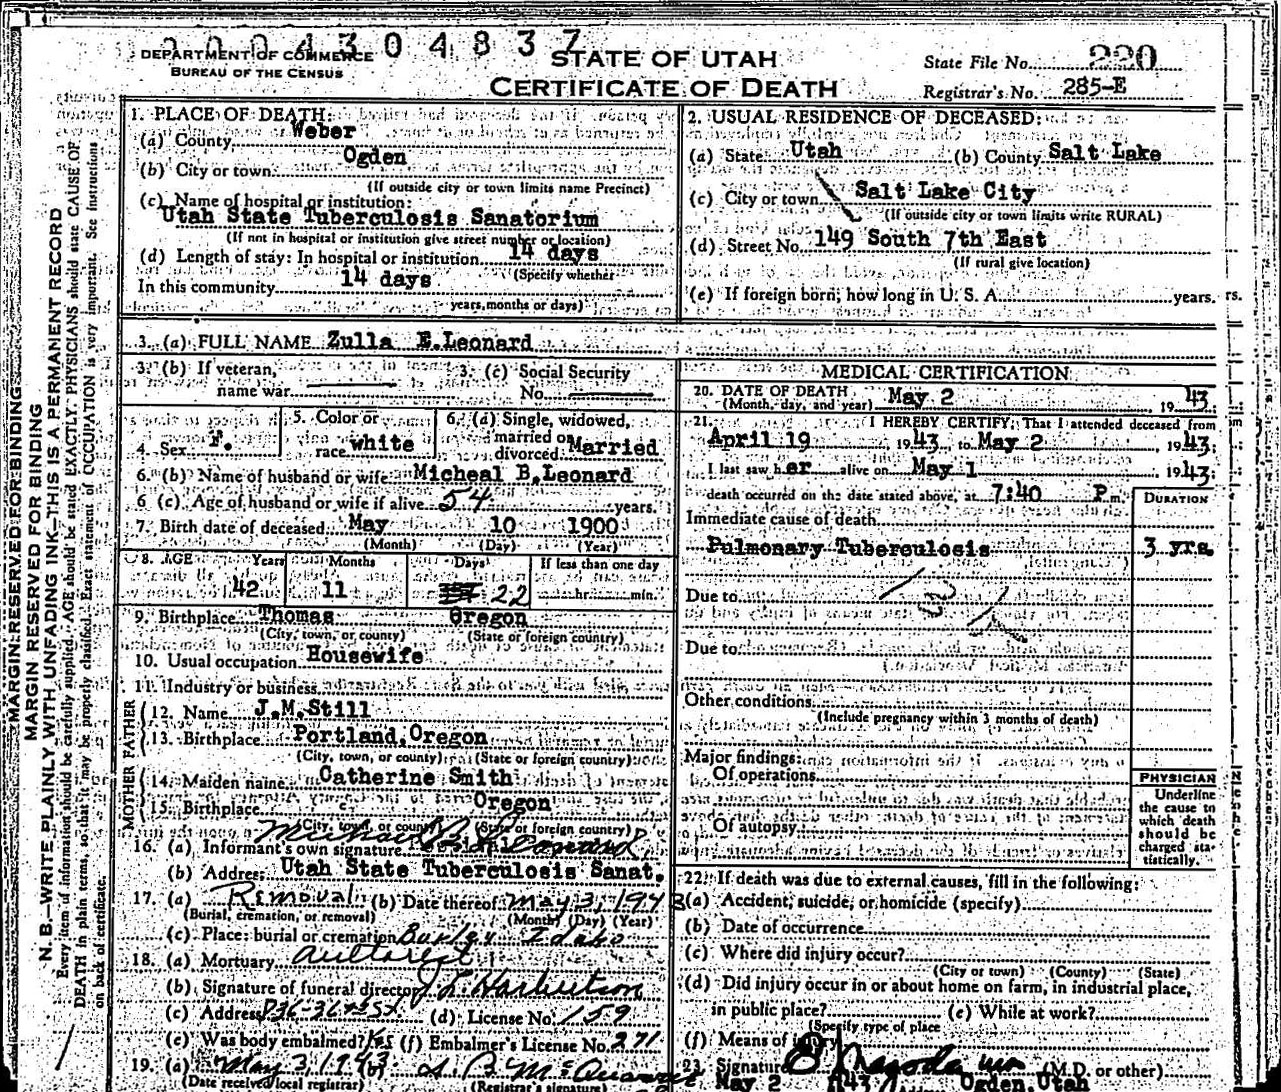 0 0 0 4 3 0 4 8 3 7
DEPARTMENT OF COMMERCE
BUREAU OF THE CENSUS
STATE OF UTAH
CERTIFICATE OF DEATH
State File No. 220
Registrar's No. 285-E
MARGIN RESERVED FOR BINDING
MARGIN RESERVED FOR BINDING
N. B.—WRITE PLAINLY WITH UNFADING INK—THIS IS A PERMANENT RECORD
Every item of information should be carefully supplied. AGE should be stated EXACTLY. PHYSICIANS should state CAUSE OF
DEATH in plain terms, so that it may be properly classified. Exact statement of OCCUPATION is very important. See Instructions
on back of certificate.
1. PLACE OF DEATH:
(a) County Weber
(b) City or town Ogden
(If outside city or town limits name Precinct)
(c) Name of hospital or institution:
Utah State Tuberculosis Sanatorium
(If not in hospital or institution give street number or location)
(d) Length of stay: In hospital or institution 14 days
(Specify whether
In this community 14 days
years, months or days)
2. USUAL RESIDENCE OF DECEASED:
(a) State Utah (b) County Salt Lake
(c) City or town Salt Lake City
(If outside city or town limits write RURAL)
(d) Street No. 149 South 7th East
(If rural give location)
(e) If foreign born, how long in U. S. A. years.
3. (a) FULL NAME Zulla E.Leonard
3. (b) If veteran, name war
3. (c) Social Security No.
4. Sex F.
5. Color or race white
6. (a) Single, widowed, married or divorced Married
6. (b) Name of husband or wife Micheal B.Leonard
6 (c) Age of husband or wife if alive 54 years.
7. Birth date of deceased May 10 1900
(Month) (Day) (Year)
8. AGE Years Months Days If less than one day
42 11 22 hr. min.
9. Birthplace Thomas Oregon
(City, town, or county) (State or foreign country)
10. Usual occupation Housewife
11. Industry or business
FATHER
12. Name J.M.Still
13. Birthplace Portland,Oregon
(City, town, or county) (State or foreign country)
MOTHER
14. Maiden name Catherine Smith
15. Birthplace Oregon
(City, town, or county) (State or foreign country)
16. (a) Informant's own signature Michael B. Leonard
(b) Address Utah State Tuberculosis Sanat.
17. (a) Removal (b) Date thereof May 3, 1943
(Burial, cremation, or removal) (Month) (Day) (Year)
(c) Place: burial or cremation Burley Idaho
18. (a) Mortuary Aultorest
(b) Signature of funeral director J L Harbertson
(c) Address 836-36th St (d) License No. 159
(e) Was body embalmed? Yes (f) Embalmer's License No. 271
19. (a) May 3, 1943 (b)
(Date received local registrar) (Registrar's signature)
MEDICAL CERTIFICATION
20. DATE OF DEATH May 2, 1943
(Month, day, and year)
21. I HEREBY CERTIFY, That I attended deceased from
April 19 1943 to May 2, 1943.
I last saw her alive on May 1 1943.
death occurred on the date stated above, at 7:40 P m.
DURATION
Immediate cause of death
Pulmonary Tuberculosis 3 yrs.
Due to
Due to
Other conditions
(Include pregnancy within 3 months of death)
Major findings:
Of operations
Of autopsy
PHYSICIAN
Underline
the cause to
which death
should be
charged sta-
tistically.
22. If death was due to external causes, fill in the following:
(a) Accident, suicide, or homicide (specify)
(b) Date of occurrence
(c) Where did injury occur?
(City or town) (County) (State)
(d) Did injury occur in or about home on farm, in industrial place,
in public place? (e) While at work?
(Specify type of place
(f) Means of injury
23. Signature (M.D. or other)
May 2 1943 Ogden, Utah